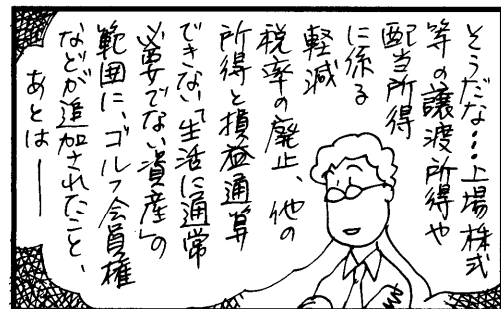 そうだな…上場株式
等の譲渡所得や
配当所得
に係る
軽減
税率の廃止、他の
所得と損益通算
できない「生活に通常
必要でない資産」の
範囲に、ゴルフ会員権
などが追加されたこと、
あとは――